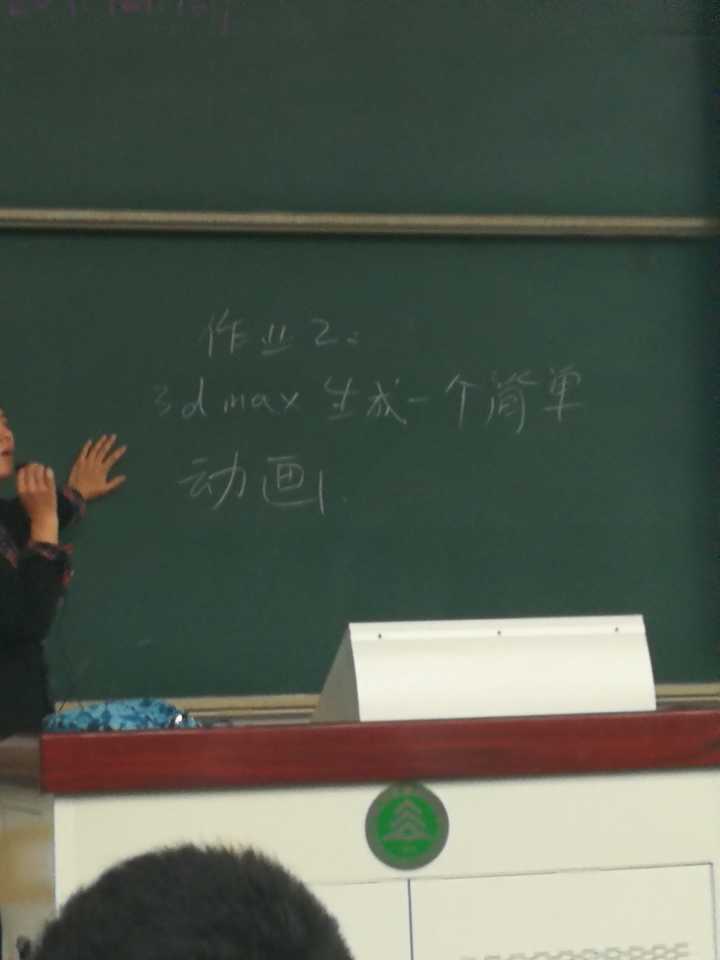 作业2:
3d max 生成一个简单
动画.